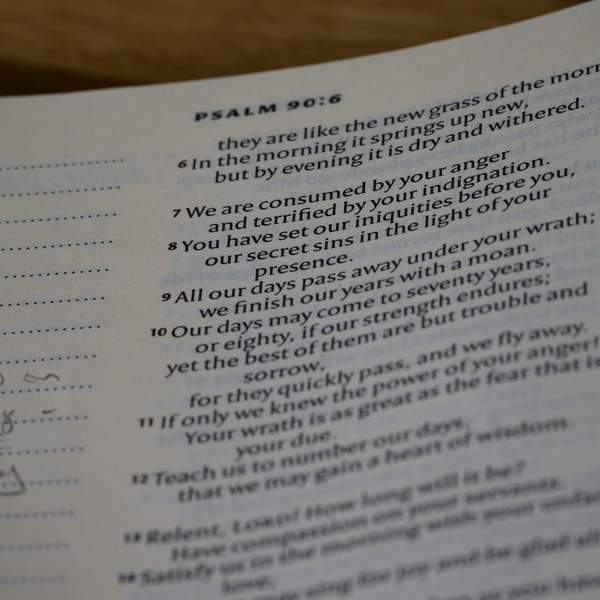 PSALM 90:6
they are like the new grass of the morn
6 In the morning it springs up new,
but by evening it is dry and withered.
7 We are consumed by your anger
and terrified by your indignation.
8 You have set our iniquities before you,
our secret sins in the light of your
presence.
9 All our days pass away under your wrath;
we finish our years with a moan.
10 Our days may come to seventy years,
or eighty, if our strength endures;
yet the best of them are but trouble and
sorrow,
for they quickly pass, and we fly away.
11 If only we knew the power of your anger!
Your wrath is as great as the fear that is
your due.
12 Teach us to number our days,
that we may gain a heart of wisdom.
13 Relent, LORD! How long will it be?
Have compassion on your servants.
14 Satisfy us in the morning with your unfai
love,
sing for joy and be glad all